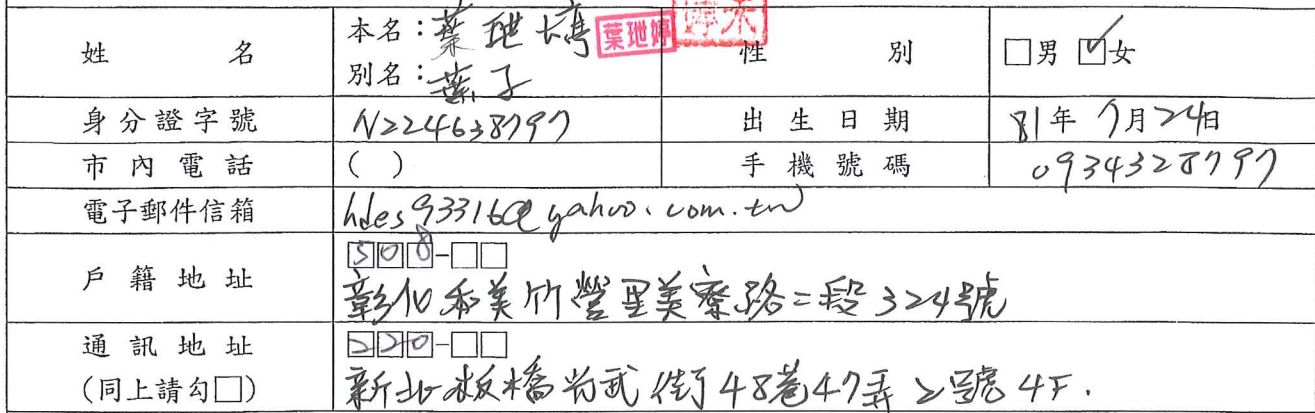 姓名 本名：葉玴婷 葉玴婷 性別 □男 ☑女
別名：葉子
身分證字號 N224638797 出生日期 81年7月24日
市內電話 ( ) 手機號碼 0934328797
電子郵件信箱 hdes93316@yahoo.com.tw
戶籍地址 508-□□
彰化和美竹營里美寮路二段324號
通訊地址 220-□□
(同上請勾□) 新北板橋尚武街48巷47弄2號4F.